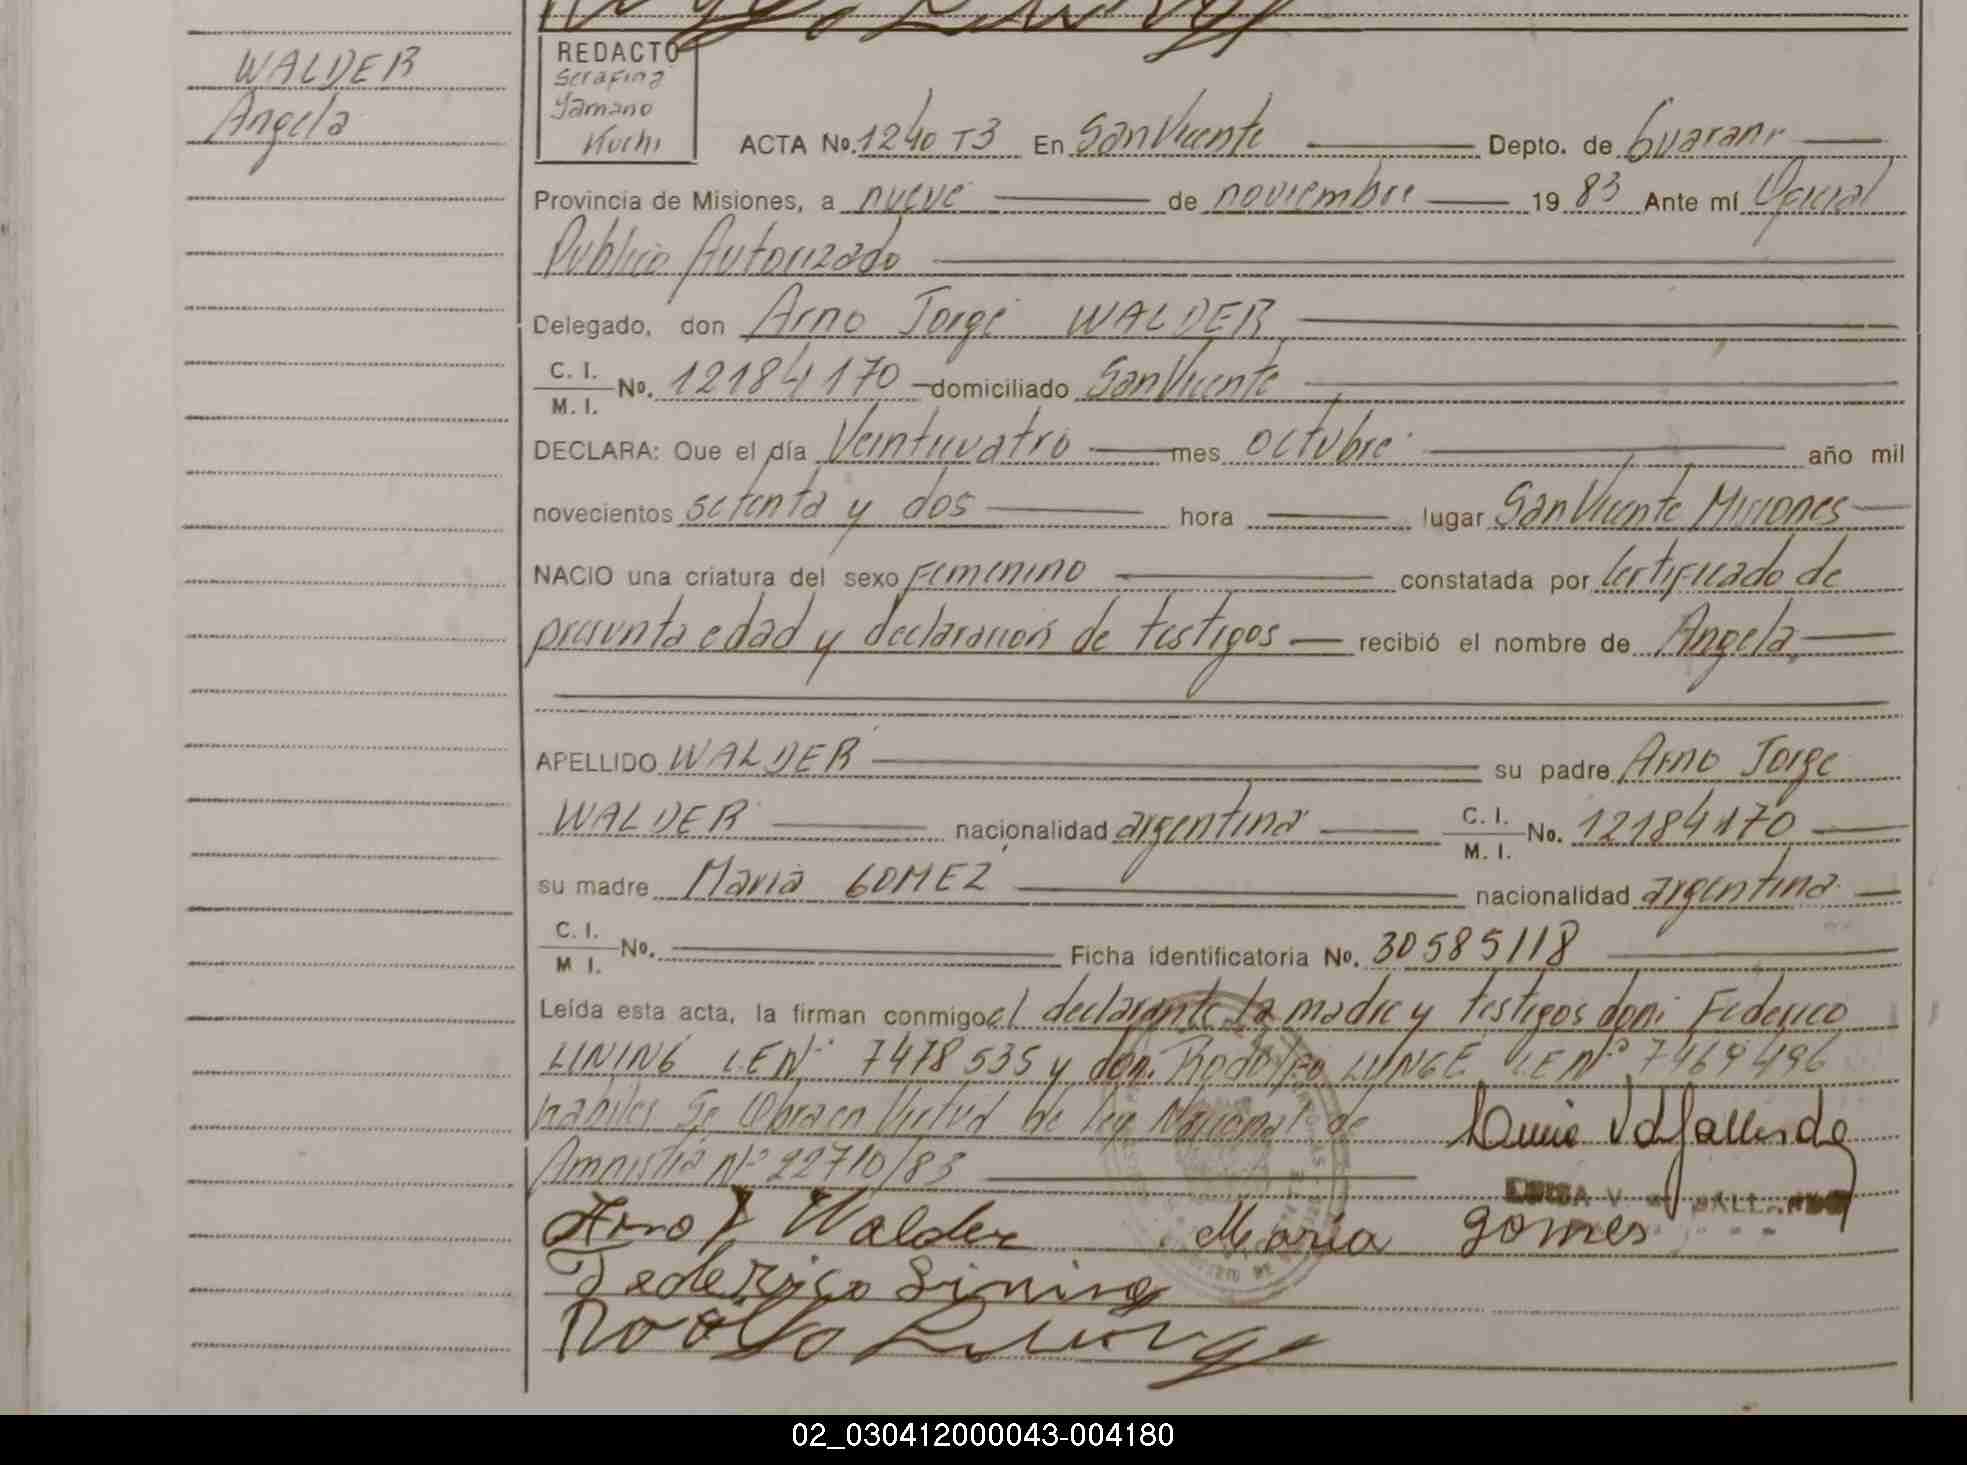 WALDER
Angela
REDACTO
Serafina
Yamano
Kuchi
ACTA No. 1240 T3 En San Vicente Depto. de Guarani
Provincia de Misiones, a nueve de noviembre 19 83 Ante mí Oficial
Publico Autorizado
Delegado, don Arno Jorge WALDER
C. I.
M. I. No. 12184170 domiciliado San Vicente
DECLARA: Que el día Veinticuatro mes octubre año mil
novecientos setenta y dos hora lugar San Vicente Misiones
NACIO una criatura del sexo Femenino constatada por Certificado de
presunta edad y declaración de testigos recibió el nombre de Angela
APELLIDO WALDER su padre Arno Jorge
WALDER nacionalidad argentina C. I.
M. I. No. 12184170
su madre Maria GOMEZ nacionalidad argentina
C. I.
M I. No. Ficha identificatoria No. 30585118
Leída esta acta, la firman conmigo el declarante la madre y testigos don: Federico
LINING L.E Nº 7478535 y don. Rodolfo LUNGE L.E Nº 7469496
Se Obra en Virtud de Ley Nacional de
Amnistia Nº 22710/83
Arno J Walder Maria gomes
Federico Lining